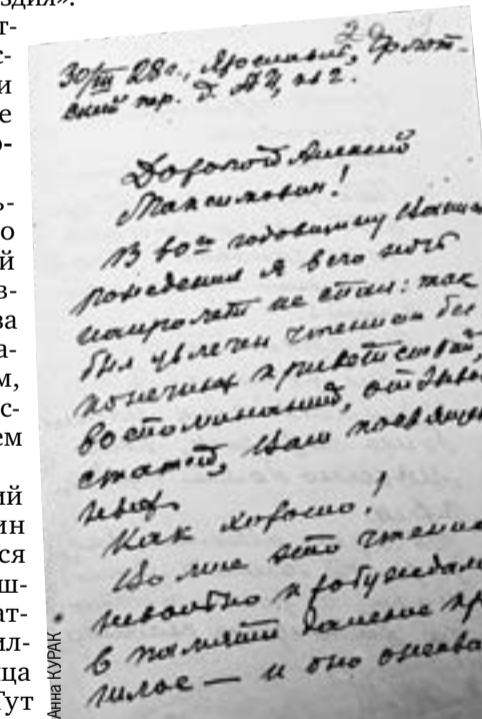 здия».
т-
с-
и
е
о-
ь-
о
й
в-
ва
а-
м,
с-
ем
ий
ин
ся
ш-
ат-
ил-
ца
Тут
Анна КУРАК
30/III 28 г., Ярославль, Флот-
ский пр. д. кв 2.
Дорогой Алексей
Максимович!
В 60ую годовщину Вашего
рождения я всю ночь
напролет не спал: так
был увлечен чтением бес
конечных приветствий,
воспоминаний,
статей, Вам посвящен
ных.
Как хорошо!
Во мне это чтение
невольно пробуждало
в памяти далекое пр
шлое — и оно